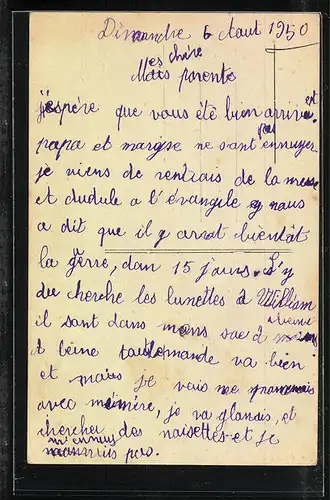 Dimanche 6 Aout 1950
Mes chère parents
j'espère que vous été bien arrivé
papa et maryse ne sont pas ennuyer
je viens de rentrais de la messe
et dudule a l'évangile y nous
a dit que il y arrat bientôt
la gerre, dan 15 jours. S'y
du cherche les lunettes à William
il sont dans mons sac à
toulemande va bien
et moi je vais me promenais
avec mémère, je va glandis, et
chercher des naisettes et je
m'ennuis pas.